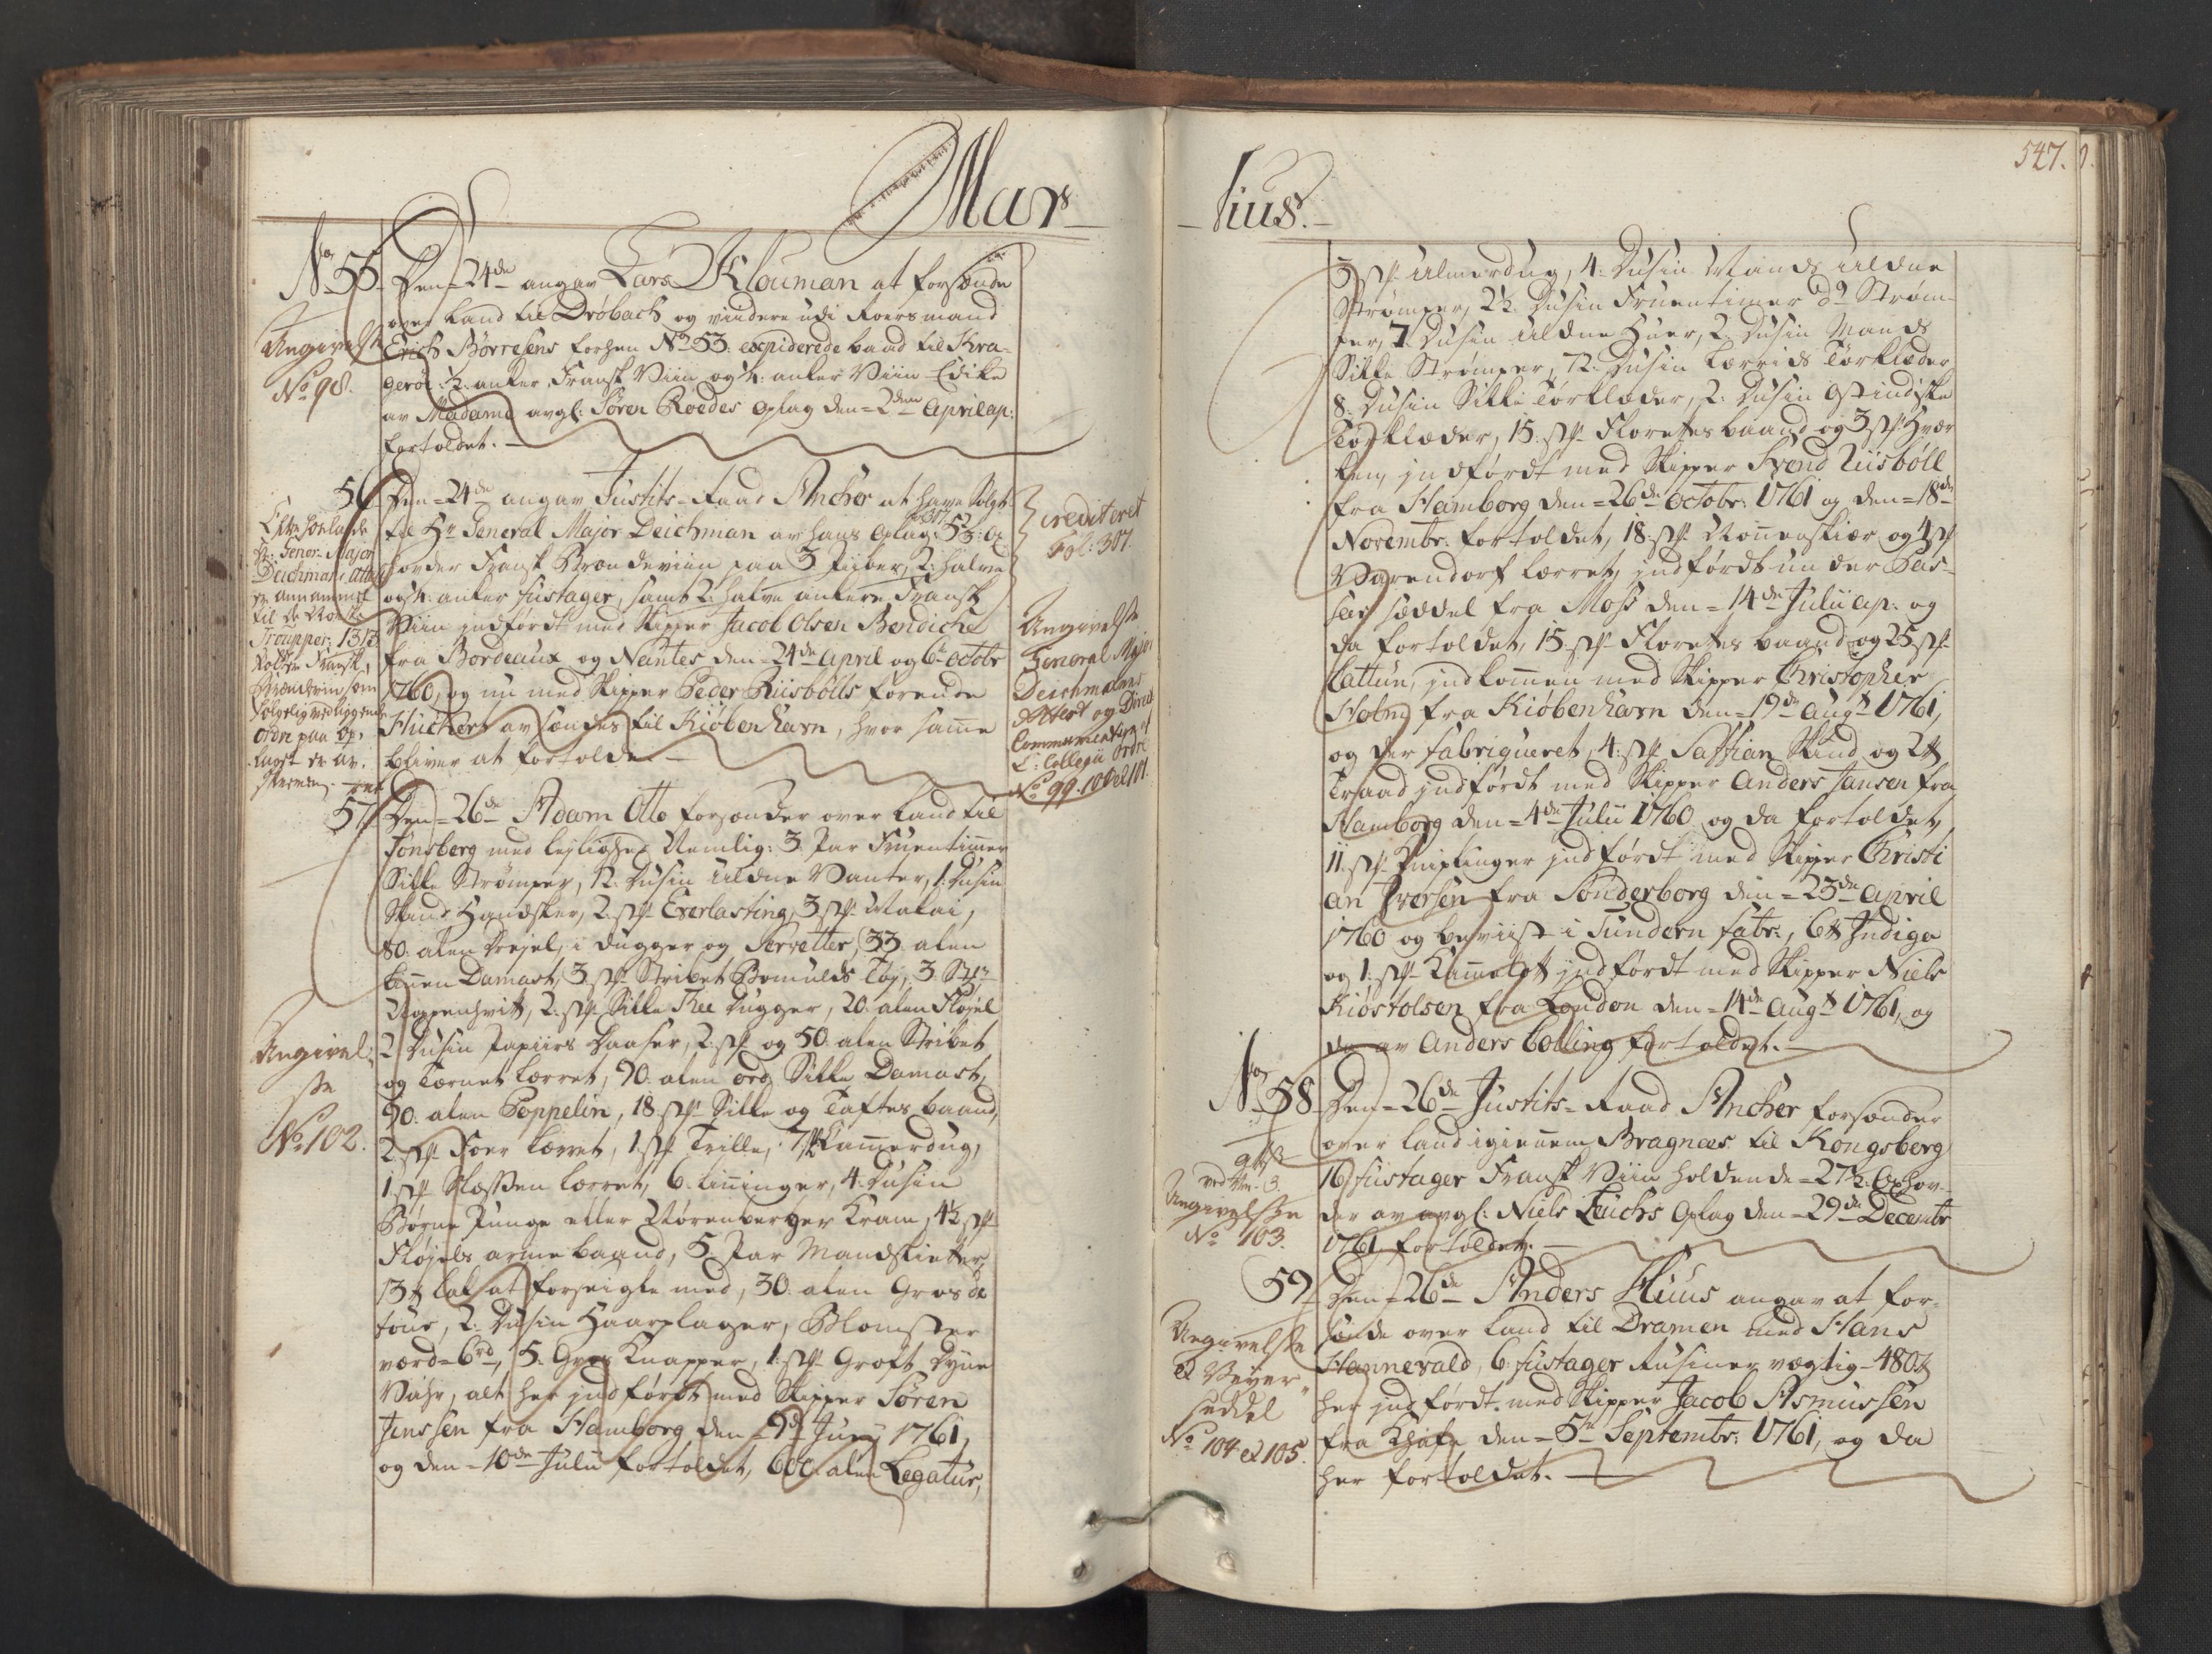 Mar-
No 55
Den 24de angav Lars Klouman at forsænde
over Land til Drøbach og videre udi Roersmand
Erich Børresens forhen No 53 expiderede baad til Kra-
gerøe 1/2 anker Fransk Viin og 1/4 anker Viin Edike
av Madame avgl: Søren Roedes Oplag den 2den April ap:
fortoldet.
Angivelse
No 98.
56
Den 24de angav Justits-Raad Ancher at have Solgt
til Hr General Major Deichman av hans Oplag
hoveder Fransk Brændeviin paa 3 Piiber, 2 halve
og 4 anker fustager, samt 2 halve ankere Fransk
Viin indført med Skipper Jacob Olsen Bendiche
fra Bordeaux og Nantes den 24de April og 6te Octobr
1760, og nu med Skipper Peder Riisbølls førende
Huckert avsændes til Kiøbenhavn, hvor samme
bliver at fortolde.
Hr. Gener. Major
Deichmans Attest
er annammet
til de Norske
Troupper 1313
Potter Fransk
Brændeviin som
følgelig vedliggende
Ordre paa Op-
laget er av-
skreven
crediteret
Fol: 307.
Angivelse
General Major
Deichmans
Attest og Direct:
Commerce
C: Collegii Ordre
No 99. 100 et 101.
57
Den 26de Adam Otto forsender over Land til
Tønsberg med lejlighed Nemlig: 3 Par Fruentimmer
Silke Strømper, 12 Dusin uldne Vanter, 1 Dusin
Skind Handsker, 2 st Everlasting, 3 st Malai,
80 alen Drejel, i dugger og Servetter, 33 alen
linnen Damask, 3 st Stribet Bomulds Tøy, 3 St
2 st Silke Thee Dugger, 20 alen Fløjel
2 Dusin Papiirs Daaser, 2 st og 50 alen Stribet
og Ternet Lærret, 90 alen ord. Silke Damask,
90 alen Poppelin, 18 st Silke og Taftes baand,
2 st Foer Lærret, 1 st Trille, 7 st Kammerdug,
1 st Slessen Lærret, 6 Linninger, 4 Dusin
Børne Punge eller Nørenberger Kram, 4 1/2 st
Fløjels arme baand, 5 Par Mandskietter,
13 lb Lak at forseigle med, 30 alen Gros de
tour, 2 Dusin Haarplager, Blomster
værd 6rd, 5 Gros Knapper, 1 st Groft Dyne
Vahr, alt her indført med Skipper Søren
Jenssen fra Hamborg den 9de Juny 1761,
og den 10de Julii fortoldet, 600 alen Legatur,
Angivel-
se
No 102.
-tius.
547.
3 st Ulmerdug, 4 Dusin Mands uldne
Strømper, 2 1/2 Dusin Fruentimer do Strøm-
per, 7 Dusin uldne Huer, 2 Dusin Mands
Silke Strømper, 12 Dusin Lærreds Tørklæder
8 Dusin Silke Tørklæder, 2 Dusin Ostindiske
Tørklæder, 15 st Florettes baand og 3 st
indført med Skipper Svend Riisbøll
fra Hamborg den 26de Octobr: 1761 og den 18de
Novembr: fortoldet, 18 st og 4 st
Varendorf Lærret, indført under Pas-
seer Sæddel fra Moss den 14de Julii ap: og
da fortoldet, 15 st Florettes baand og 25 st
Cattun, indkommen med Skipper Christopher
Holm fra Kiøbenhavn den 19de Augt 1761,
og der fabriqueret, 4 st Saffian Skind og 2 lb
Traad indført med Skipper Anders Jansen fra
Hamborg den 4de Julii 1760 og da fortoldet,
11 st Kniplinger indført med Skipper Christi-
an Iversen fra Sønderborg den 23de April
1760 og beviist i Tundern fabr:, 6 lb Indigo
og 1 st Kamelott indført med Skipper Niels
Kiøstolsen fra London den 14de Augt 1761, og
da av Anders Colling fortoldet.
No 58
Den 26de Justits-Raad Ancher forsender
over Land igiennem Bragnæs til Kongsberg
16 fustager Fransk Viin holdende 27 1/2 Oxhov-
der av avgl: Niels Leuchs Oplag den 29de Decembr
1761 fortoldet.
Angivelse
No 103.
59
Den 26de Anders Huus angav at for-
sende over Land til Dramen med Hans
Hannevald, 6 fustager Rusiner vegtig 480 lb
her indført med Skipper Jacob Asmussen
fra den 5te Septembr: 1761, og da
her fortoldet.
Angivelse
& Veyer
Seddel
No 104 et 105.